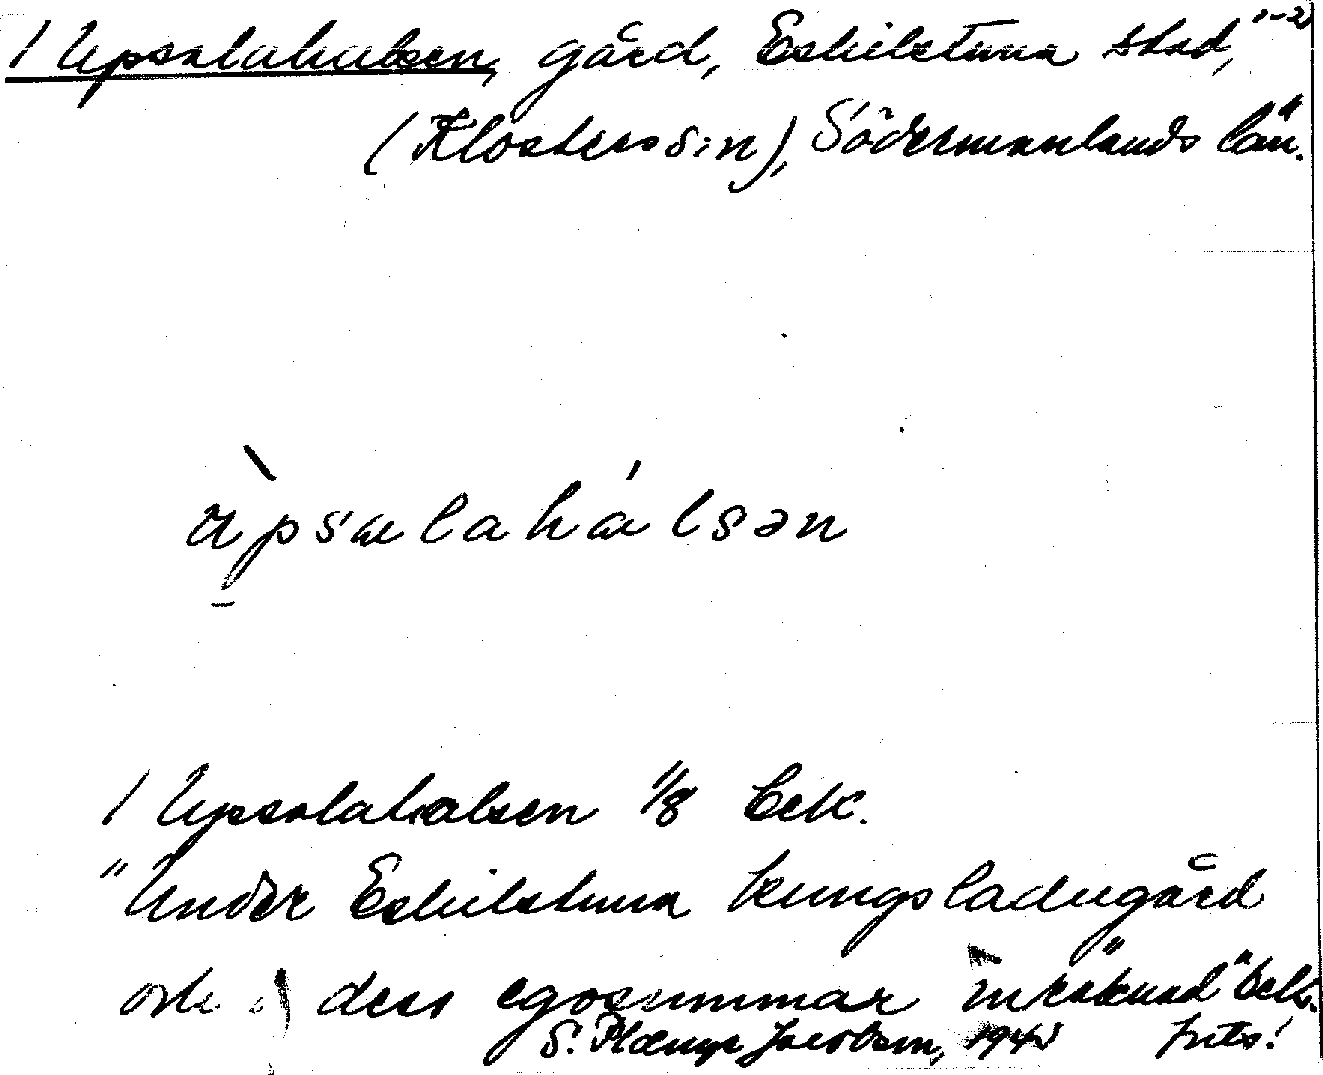 / Upsalahalsen, gård, Eskilstuna stad, 1-2)
(Klosters s:n), Södermanlands län.
ùpsalahálsən
/ Upsalahalsen 1/8 bek.
"Under Eskilstuna kungsladugård
och i dess egosummar inräknad" bek.
S. Jacobsen, 1943